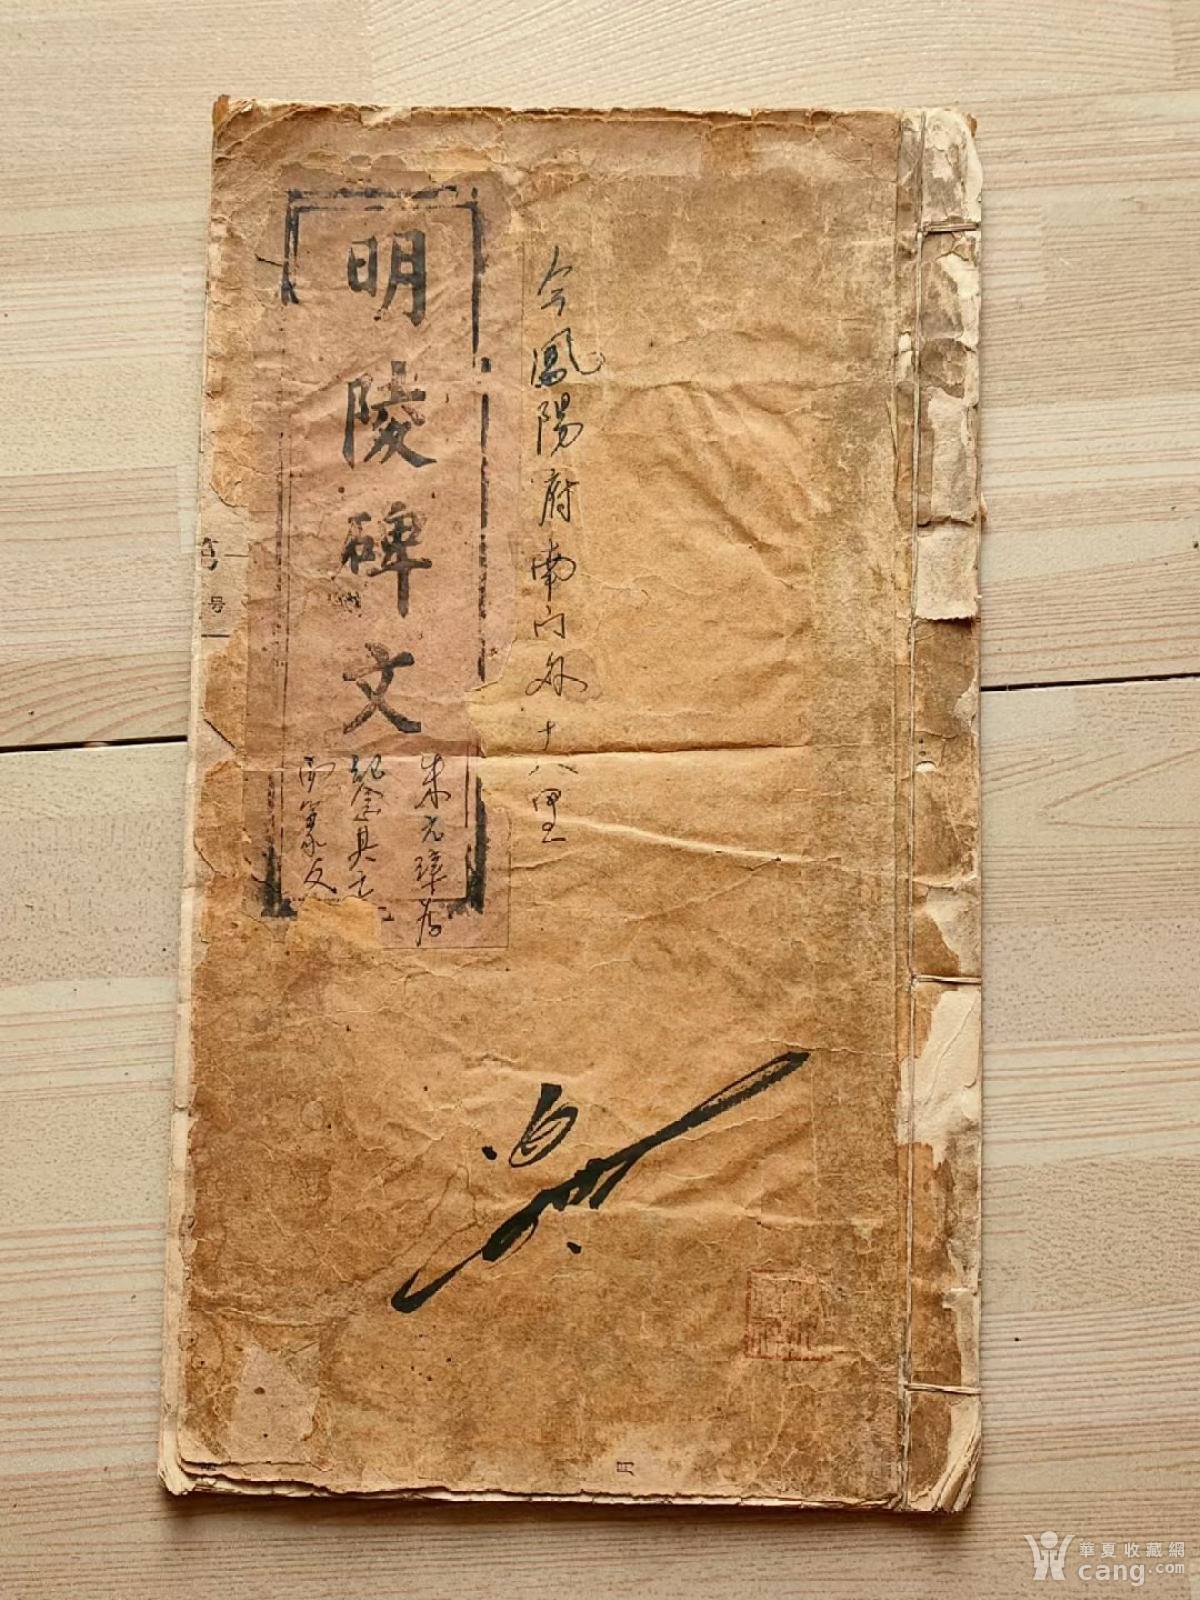 今鳳陽府南门外十八里
明陵碑文
朱元璋为
纪念其
而篆
号
華夏收藏網
cang.com